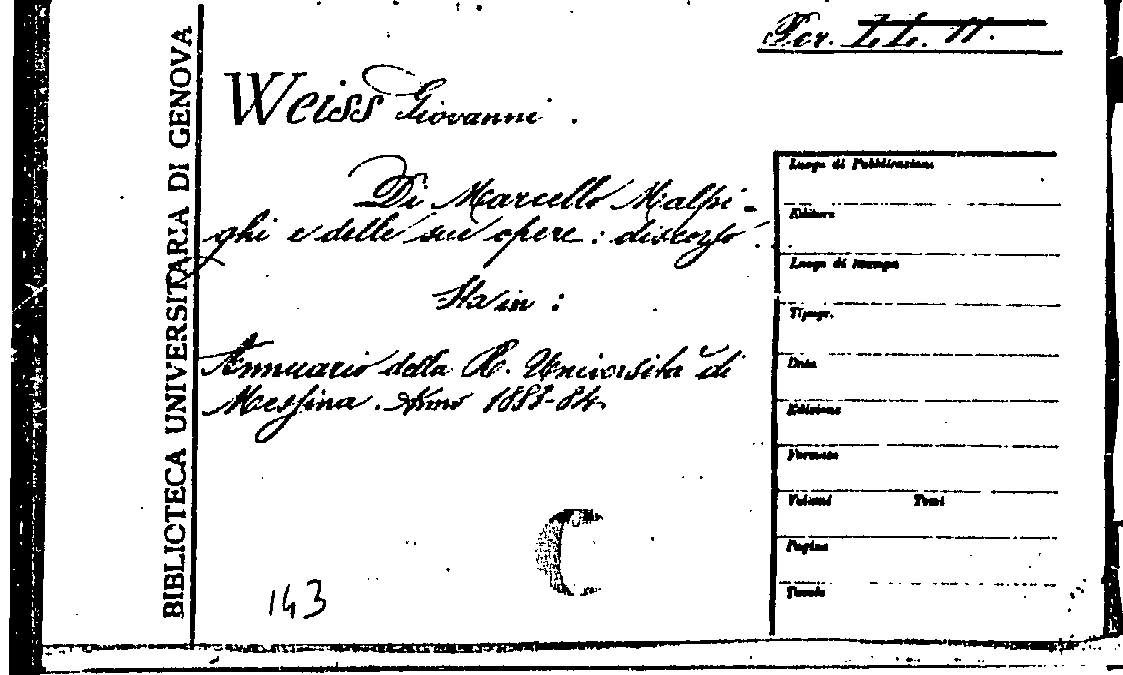 Per. LL. 11.
BIBLIOTECA UNIVERSITARIA DI GENOVA
Weiss Giovanni.
Di Marcello Malpi-
ghi e delle sue opere: discorso.
Sta in:
Annuario della R. Università di
Messina. Anno 1883-84.
C
143
Luogo di Pubblicazione
Editore
Luogo di stampa
Tipogr.
Data
Edizione
Formato
Volumi Tomi
Pagine
Tavole